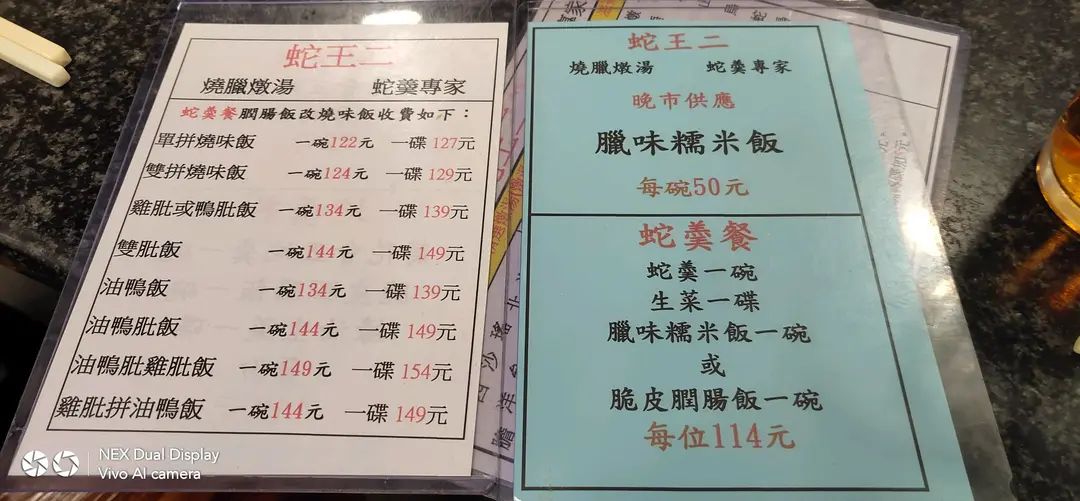 蛇王二
燒臘燉湯 蛇羹專家
蛇羹餐膶腸飯改燒味飯收費如下：
單拼燒味飯 一碗122元 一碟 127元
雙拼燒味飯 一碗124元 一碟 129元
雞肶或鴨肶飯 一碗134元 一碟 139元
雙肶飯 一碗144元 一碟 149元
油鴨飯 一碗134元 一碟 139元
油鴨肶飯 一碗144元 一碟 149元
油鴨肶雞肶飯 一碗149元 一碟 154元
雞肶拼油鴨飯 一碗144元 一碟 149元
蛇王二
燒臘燉湯 蛇羹專家
晚市供應
臘味糯米飯
每碗50元
蛇羹餐
蛇羹一碗
生菜一碟
臘味糯米飯一碗
或
脆皮膶腸飯一碗
每位114元
NEX Dual Display
Vivo AI camera